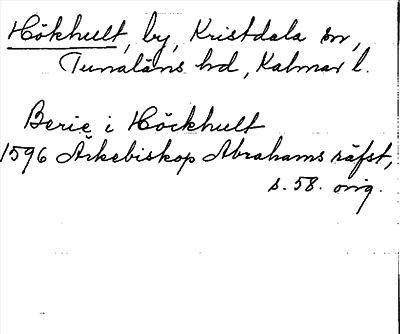 Hökhult, by, Kristdala sn,
Tunaläns hd, Kalmar l.
Berie i Höckhult
1596 Ärkebiskop Abrahams räfst,
s. 58. orig.